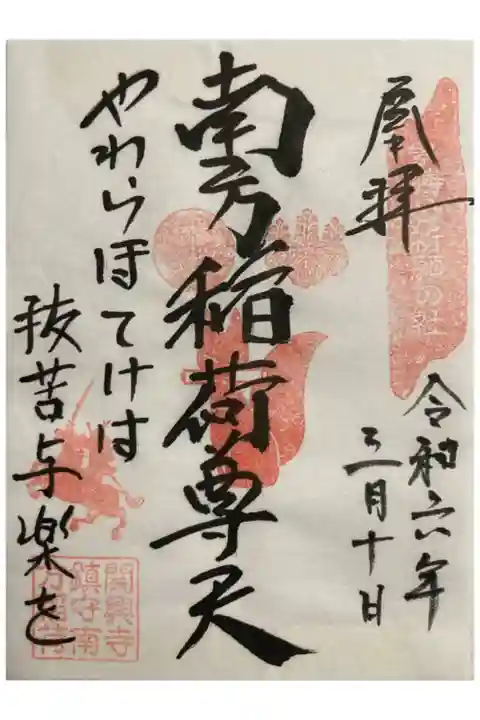 奉拝
令和六年
三月十日
南方稲荷尊天
やわらほてけは
抜苦与楽を
関興寺
鎮守南
方稲荷